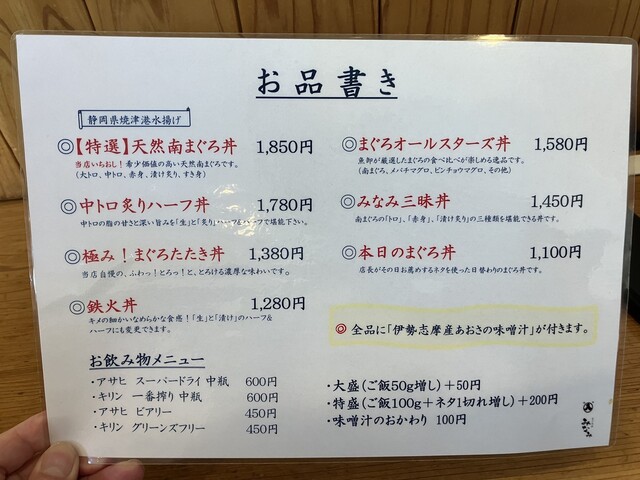 お品書き
静岡県焼津港水揚げ
◎【特選】天然南まぐろ丼 1,850円
当店いちおし！希少価値の高い天然南まぐろです。
（大トロ、中トロ、赤身、漬け炙り、すき身）
◎中トロ炙りハーフ丼 1,780円
中トロの脂の甘さと深い旨みを「生」と「炙り」ハーフ&ハーフで堪能下さい。
◎極み！まぐろたたき丼 1,380円
当店自慢の、ふわっ！とろっ！と、とろける濃厚な味わいです。
◎鉄火丼 1,280円
キメの細かいなめらかな食感！「生」と「漬け」のハーフ&
ハーフにも変更できます。
◎まぐろオールスターズ丼 1,580円
魚卸が厳選したまぐろの食べ比べが楽しめる逸品です。
（南まぐろ、メバチマグロ、ビンチョウマグロ、その他）
◎みなみ三昧丼 1,450円
南まぐろの「トロ」、「赤身」、「漬け炙り」の三種類を堪能できる丼です。
◎本日のまぐろ丼 1,100円
店長がその日お薦めするネタを使った日替わりのまぐろ丼です。
◎ 全品に「伊勢志摩産あおさの味噌汁」が付きます。
お飲み物メニュー
・アサヒ スーパードライ 中瓶 600円
・キリン 一番搾り 中瓶 600円
・アサヒ ビアリー 450円
・キリン グリーンズフリー 450円
・大盛（ご飯50g増し）+50円
・特盛（ご飯100g＋ネタ1切れ増し）+200円
・味噌汁のおかわり 100円